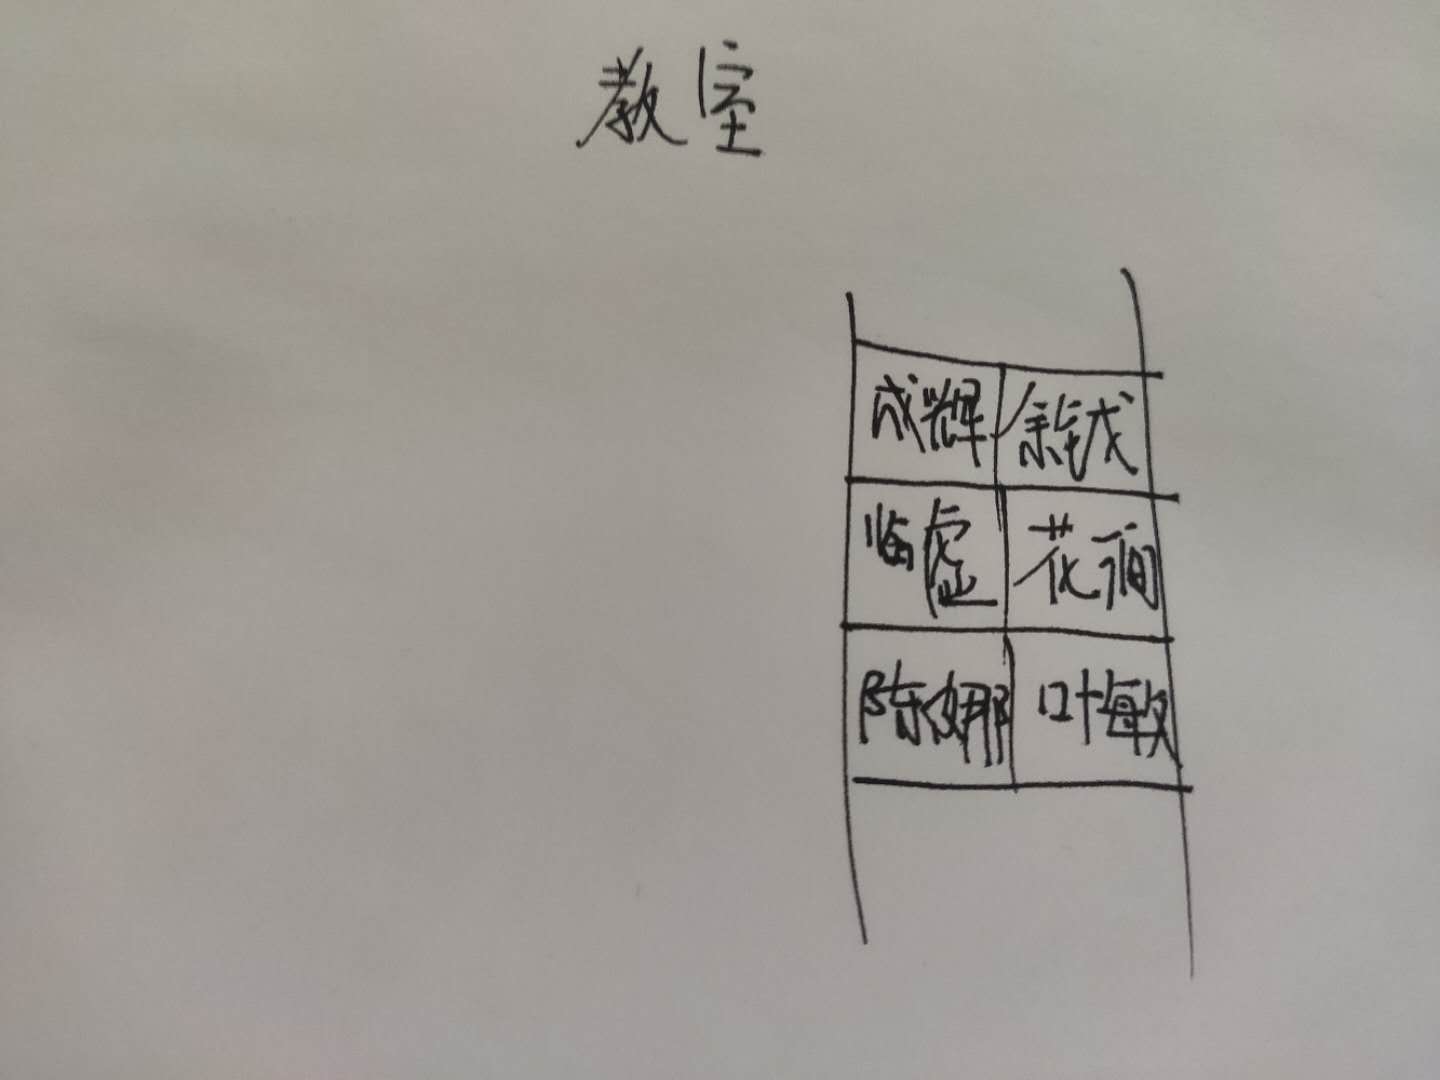 教室
成辉 余钱
临虚 花涧
陈娜 叶敏